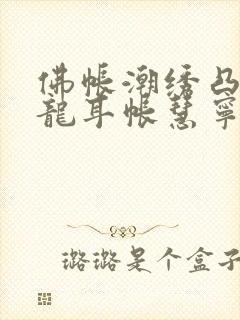 佛帐潮绣凸
龍耳帐慧寧
璐璐是个盒子